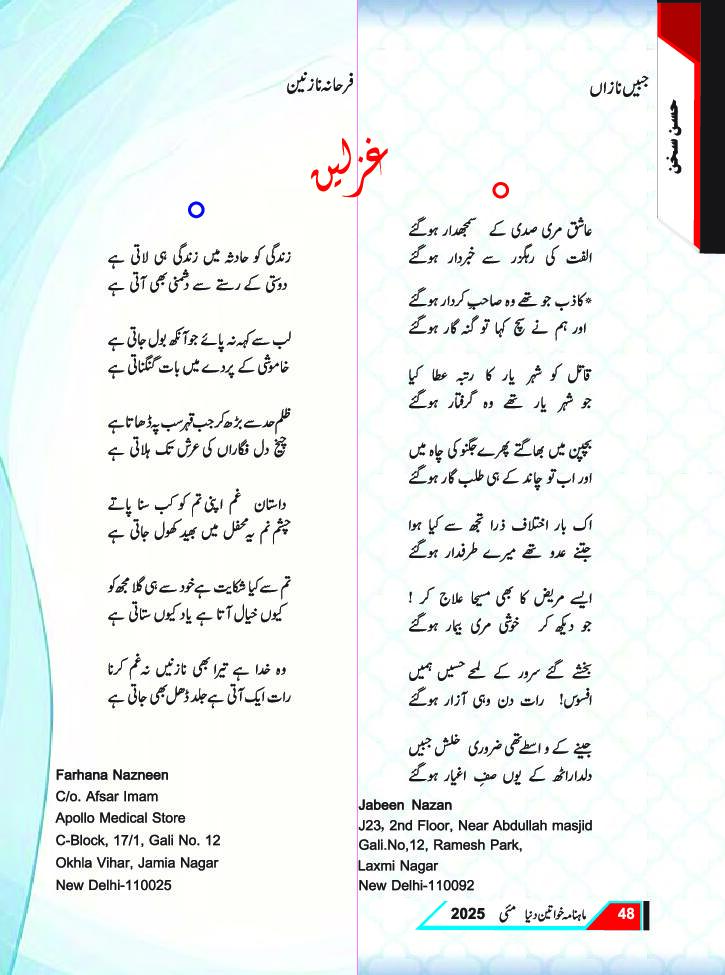 حسن سخن
جبیں نازاں
فرحانہ نازنین
غزلیں
عاشق مری صدی کے سمجھدار ہوگئے
الفت کی رہگزر سے خبردار ہوگئے
*کاذب جو تھے وہ صاحبِ کردار ہوگئے
اور ہم نے سچ کہا تو گنہ گار ہوگئے
قاتل کو شہر یار کا رتبہ عطا کیا
جو شہر یار تھے وہ گرفتار ہوگئے
بچپن میں بھاگتے پھرے جگنو کی چاہ میں
اور اب تو چاند کے ہی طلب گار ہوگئے
اک بار اختلاف ذرا تجھ سے کیا ہوا
جتنے عدو تھے میرے طرفدار ہوگئے
ایسے مریض کا بھی مسیحا علاج کر !
جو دیکھ کر خوشی مری بیمار ہوگئے
بخشے گئے سرور کے لمحے حسیں ہمیں
افسوس! رات دن وہی آزار ہوگئے
جینے کے واسطے تھی ضروری خلش جبیں
دلدار اٹھ کے یوں صفِ اغیار ہوگئے
Jabeen Nazan
J23, 2nd Floor, Near Abdullah masjid
Gali.No,12, Ramesh Park,
Laxmi Nagar
New Delhi-110092
زندگی کو حادثہ میں زندگی ہی لاتی ہے
دوستی کے رستے سے دشمنی بھی آتی ہے
لب سے کہہ نہ پائے جو آنکھ بول جاتی ہے
خاموشی کے پردے میں بات گنگناتی ہے
ظلم حد سے بڑھ کر جب قہر سب پہ ڈھاتا ہے
چیخ دل فگاراں کی عرش تک ہلاتی ہے
داستان غم اپنی تم کو کب سنا پاتے
چشم نم یہ محفل میں بھید کھول جاتی ہے
تم سے کیا شکایت ہے خود سے ہی گلا مجھ کو
کیوں خیال آتا ہے یاد کیوں ستاتی ہے
وہ خدا ہے تیرا بھی نازنیں نہ غم کرنا
رات ایک آتی ہے جلد ڈھل بھی جاتی ہے
Farhana Nazneen
C/o. Afsar Imam
Apollo Medical Store
C-Block, 17/1, Gali No. 12
Okhla Vihar, Jamia Nagar
New Delhi-110025
48 ماہنامہ خواتین دنیا مئی 2025